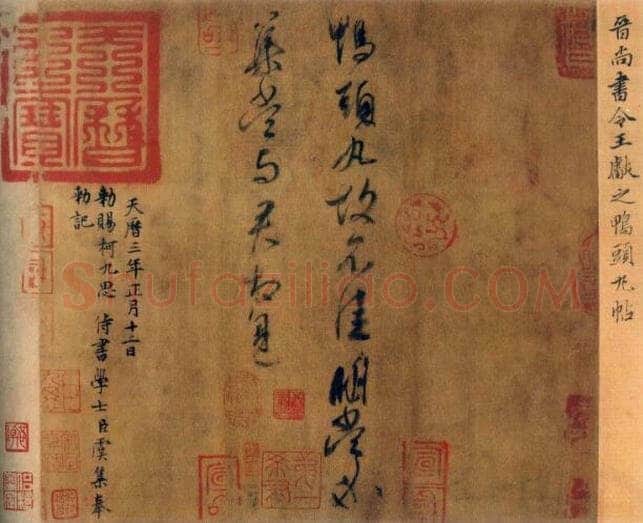 晉尚書令王獻之鴨頭丸帖
鴨頭丸故不佳明當必
集當與君相見
天曆三年正月十二日
勅賜柯九思侍書學士臣虞集奉
勅記
天曆之寶
Shufaziliao.COM